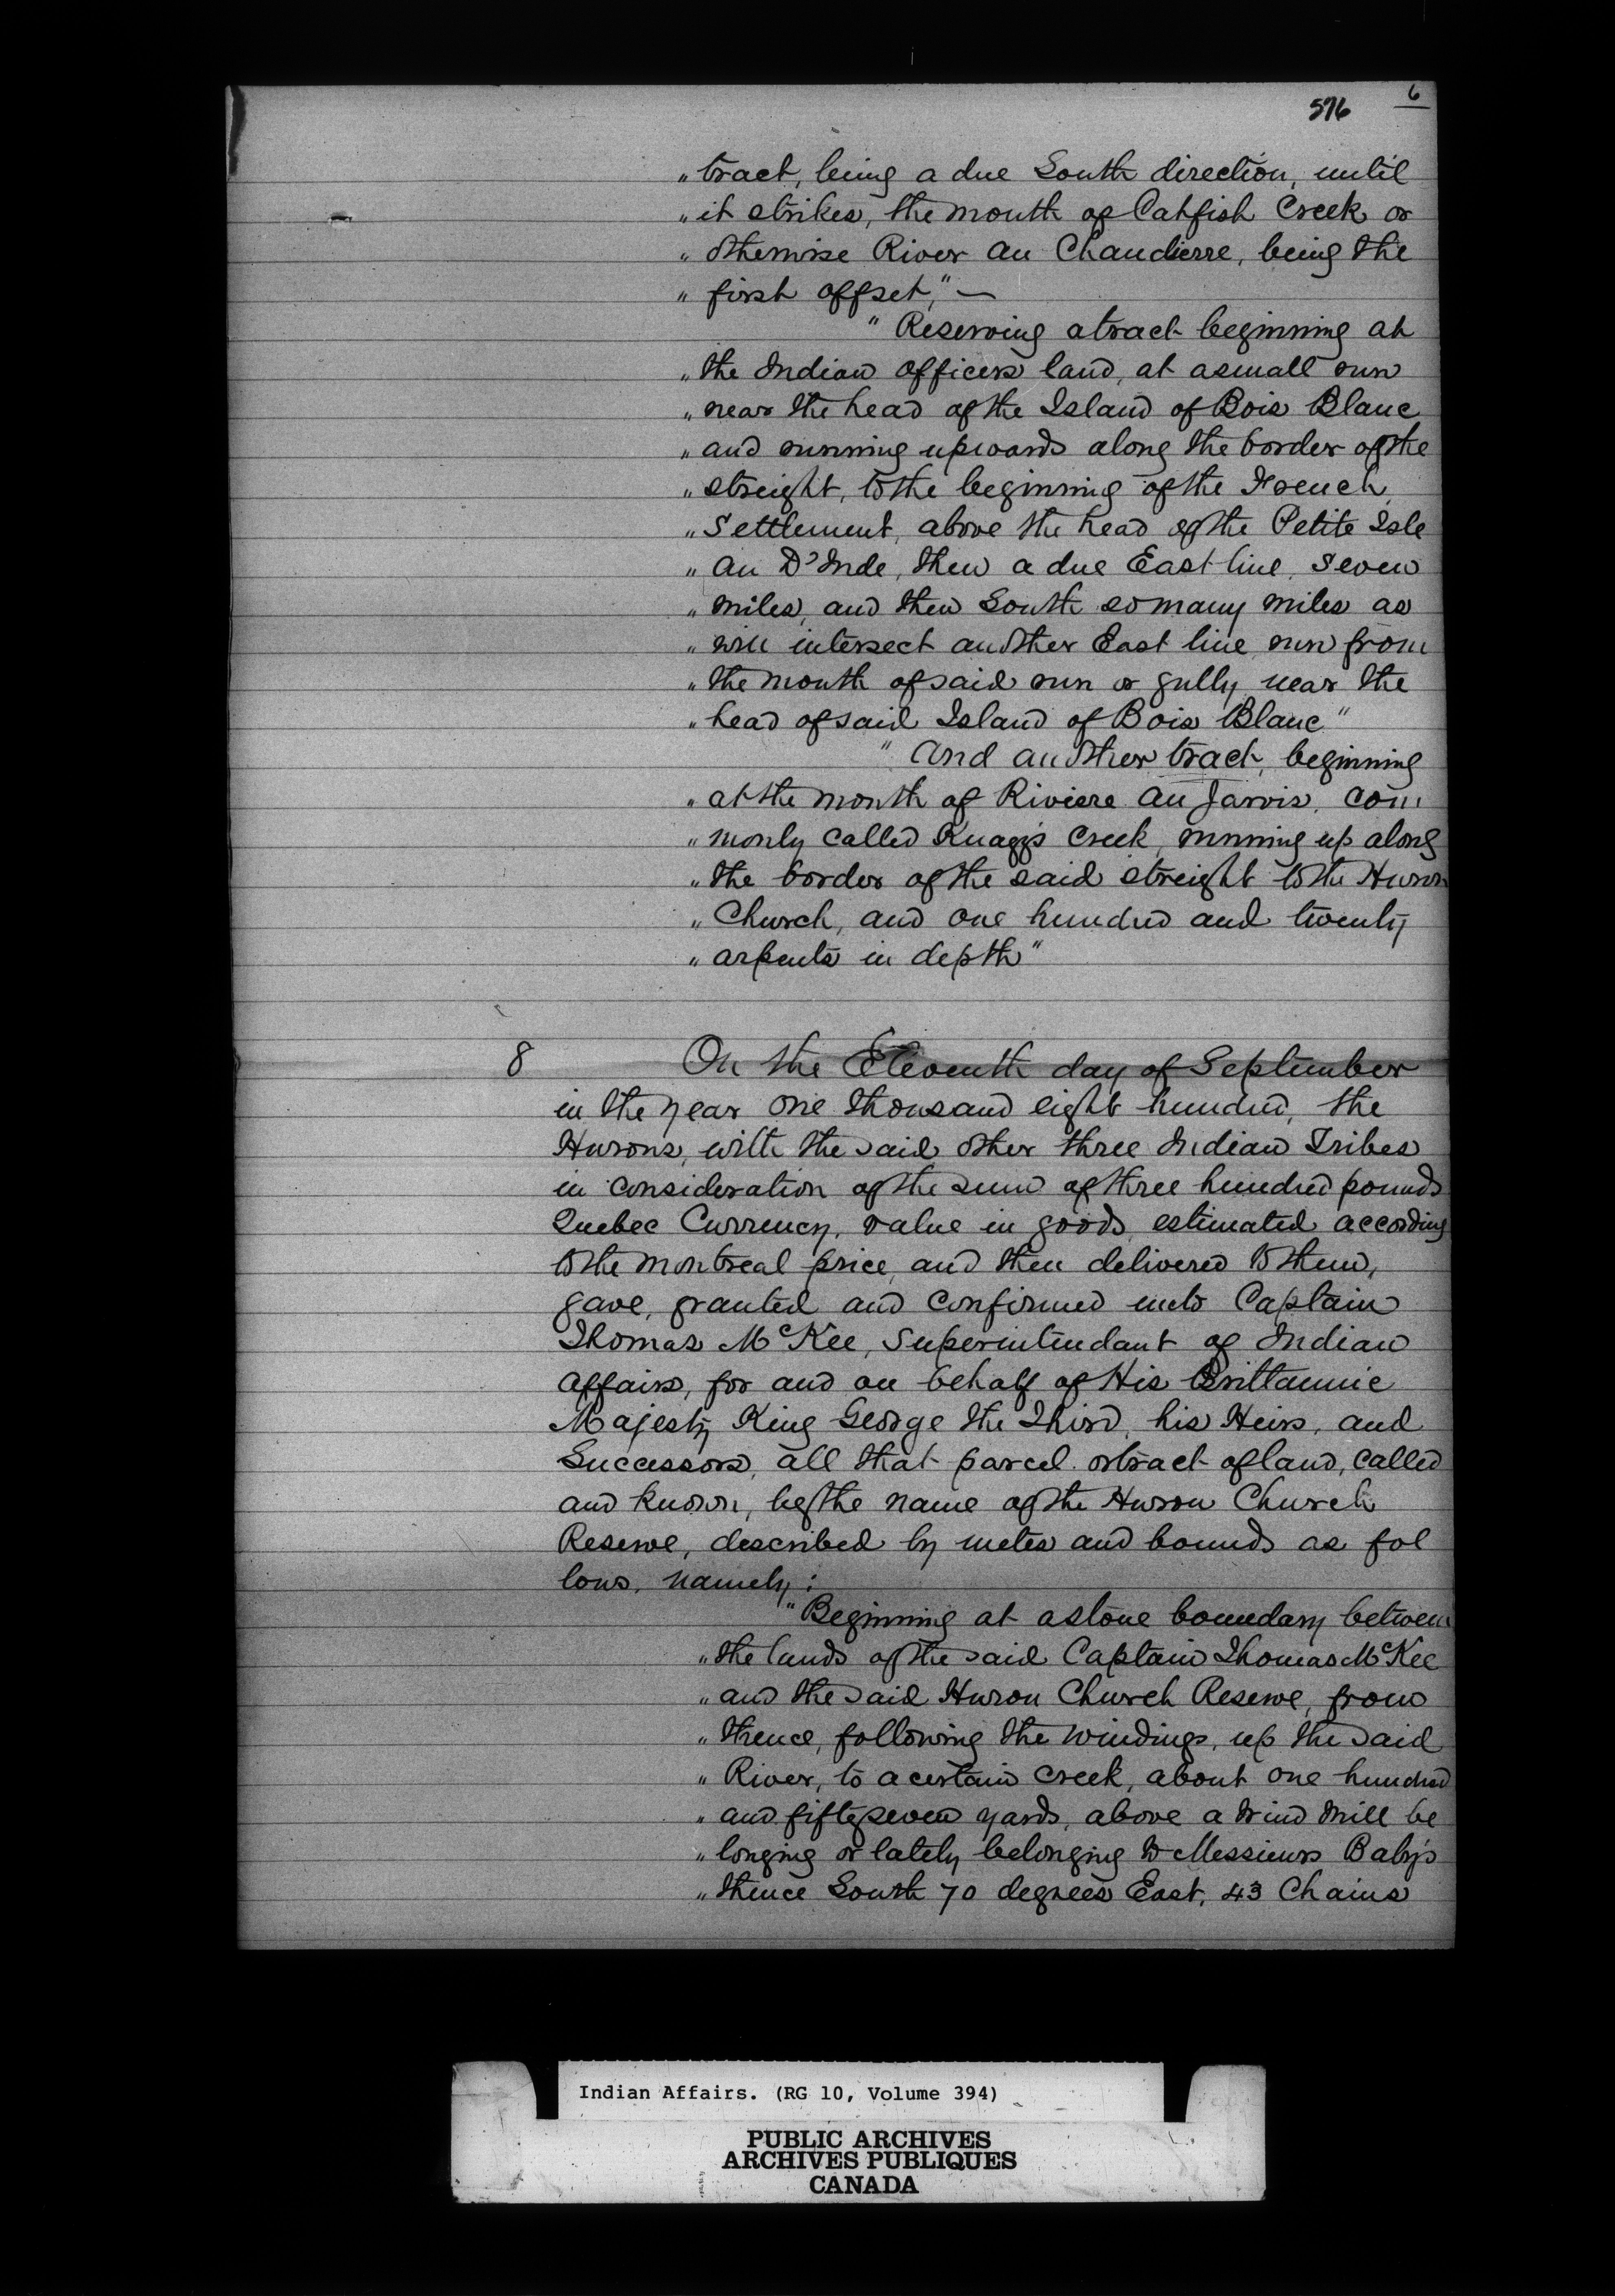 576 6
„ tract, being a due South direction, until
„ it strikes, the mouth of Catfish Creek or
„ otherwise River au Chaudierre, being the
„ first offset," —
" Reserving a tract beginning at
„ the Indian officers land, at a small run
„ near the head of the Island of Bois Blanc
„ and running upwards along the border of the
„ streight, to the beginning of the French
„ Settlement, above the head of the Petite Isle
„ au D'Inde, then a due East line, seven
„ miles, and then South so many miles as
„ will intersect another East line run from
„ the mouth of said run or gully near the
„ head of said Island of Bois Blanc"
" And another tract, beginning
„ at the mouth of Riviere au Jarvis, com
„ monly called Knaggs Creek, running up along
„ the border of the said streight to the Huron
„ Church, and one hundred and twenty
„ arpents in depth"
8 On the Eleventh day of September
in the year one thousand eight hundred, the
Hurons, with the said other three Indian Tribes
in consideration of the sum of three hundred pounds
Quebec Currency, value in goods, estimated according
to the Montreal price, and then delivered to them,
gave, granted and confirmed unto Captain
Thomas McKee, Superintendant of Indian
Affairs, for and on behalf of His Brittannic
Majesty King George the Third, his Heirs, and
Successors, all that parcel or tract of land, called
and known, by the name of the Huron Church
Reserve, described by metes and bounds as fol
lows, namely:
"Beginning at a stone boundary between
„ the lands of the said Captain Thomas McKee
„ and the said Huron Church Reserve, from
„ thence, following the windings, up the said
„ River, to a certain creek, about one hundred
„ and fifty seven yards, above a Wind Mill be
„ longing or lately belonging to Messieurs Baby's
„ thence South 70 degrees East, 43 Chains
Indian Affairs. (RG 10, Volume 394)
PUBLIC ARCHIVES
ARCHIVES PUBLIQUES
CANADA